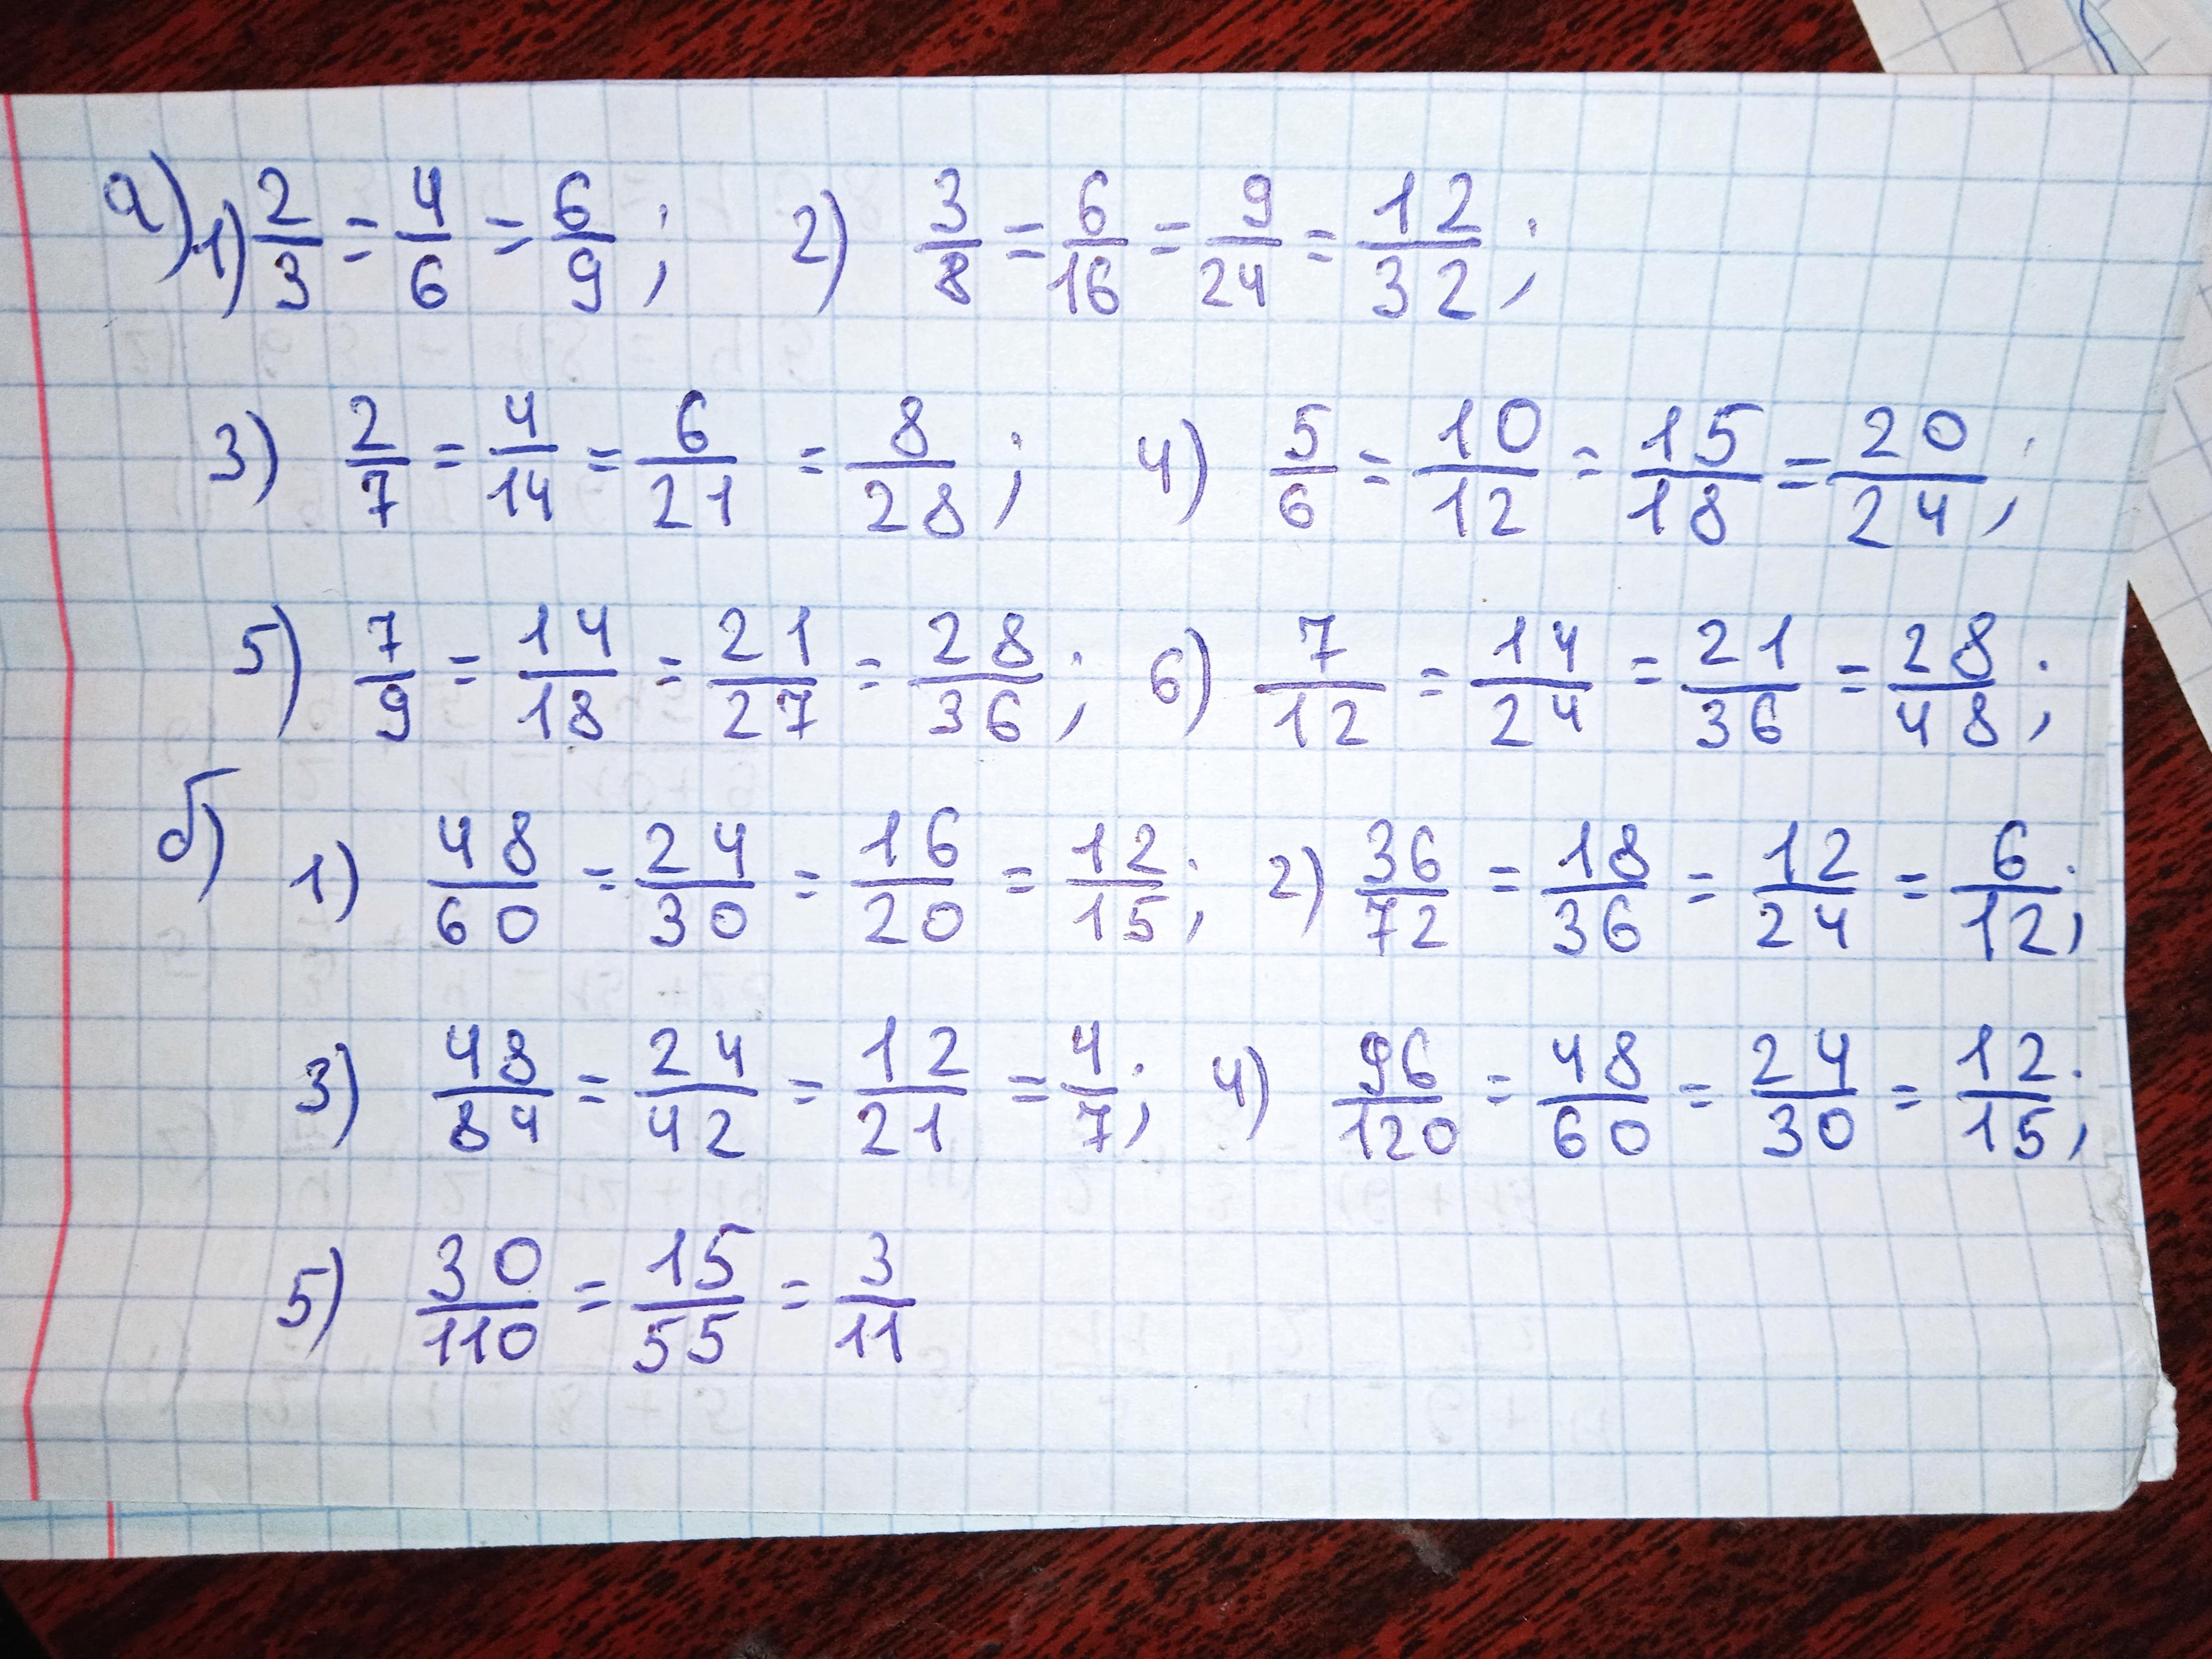 а) 1) 2/3 = 4/6 = 6/9; 2) 3/8 = 6/16 = 9/24 = 12/32;
3) 2/7 = 4/14 = 6/21 = 8/28; 4) 5/6 = 10/12 = 15/18 = 20/24;
5) 7/9 = 14/18 = 21/27 = 28/36; 6) 7/12 = 14/24 = 21/36 = 28/48;
б) 1) 48/60 = 24/30 = 16/20 = 12/15; 2) 36/72 = 18/36 = 12/24 = 6/12;
3) 48/84 = 24/42 = 12/21 = 4/7; 4) 96/120 = 48/60 = 24/30 = 12/15;
5) 30/110 = 15/55 = 3/11